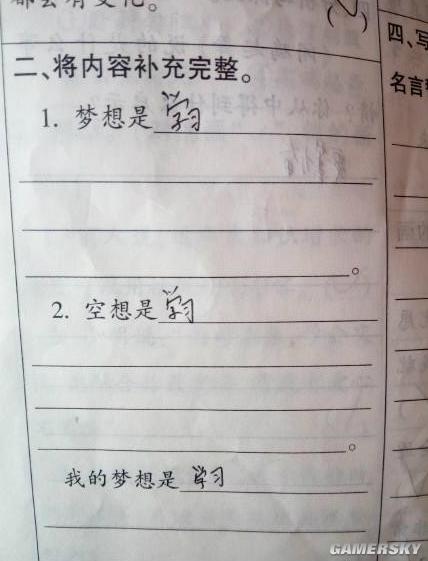 都会有变化。
( )
二、将内容补充完整。
1. 梦想是学习
。
2. 空想是学习
。
我的梦想是学习
四、写
名言
GAMERSKY